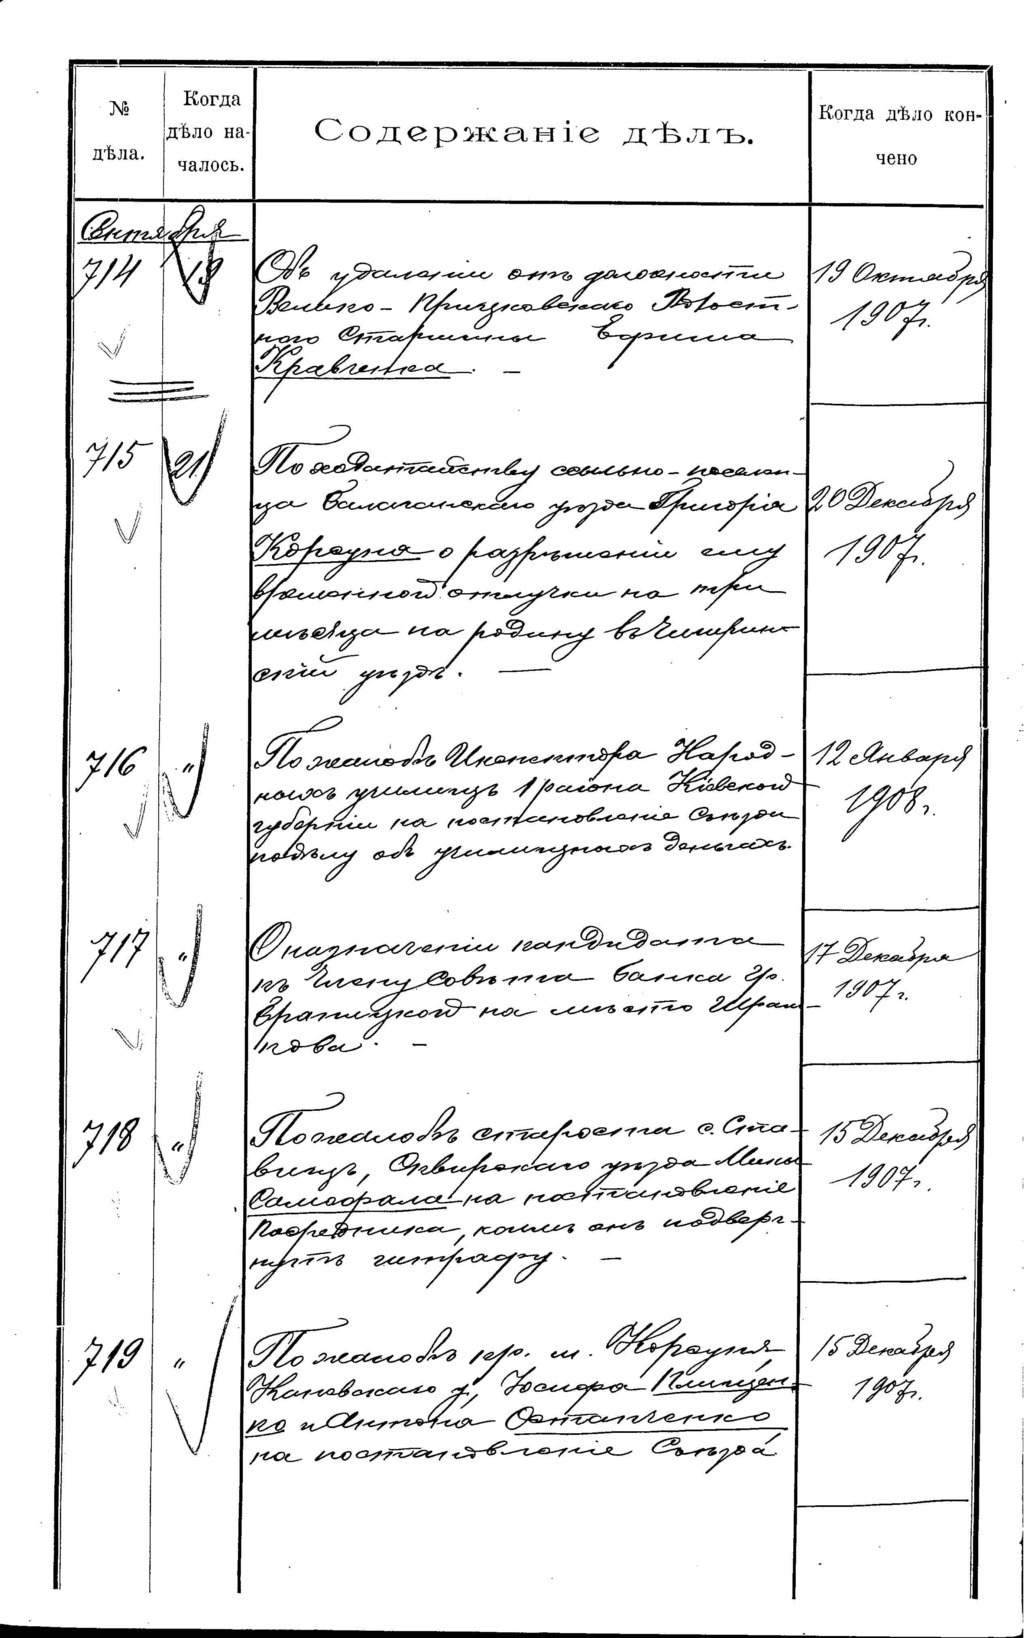 № дѣла.
Когда дѣло на-
чалось.
Содержаніе дѣлъ.
Когда дѣло кон-
чено
Сентября
714 19 Объ удаленіи отъ должности 19 Октября
Велико-Прицковскаго Волост- 1907г.
ного Старшины Ефима
Кравченка. —
715 21 По ходатайству ссыльно-поселен-
ца Балаганскаго уѣзда Григорія 20 Декабря
Корсуна о разрѣшеніи ему 1907г.
временной отлучки на три
мѣсяца на родину въ Чигирин-
скій уѣздъ. —
716 " По жалобѣ Инспектора Народ- 12 Января
ныхъ училищъ 1 района Кіевской 1908г.
губерніи на постановленіе Съѣзда
по дѣлу объ училищныхъ деньгахъ.
717 " О назначеніи кандидата 17 Декабря
къ Члену Совѣта банка гр. 1907г.
Браницкой на мѣсто
718 " По жалобѣ старосты с. Ста- 15 Декабря
вищъ, Сквирскаго уѣзда Мины 1907г.
Самофала на постановленіе
Посредника, коимъ онъ подверг-
нутъ штрафу. —
719 " По жалобѣ кр. м. Корсуня, 15 Декабря
Каневскаго у., Іосифа Клищен- 1907г.
ко и Антона Остапченко
на постановленіе Съѣзда